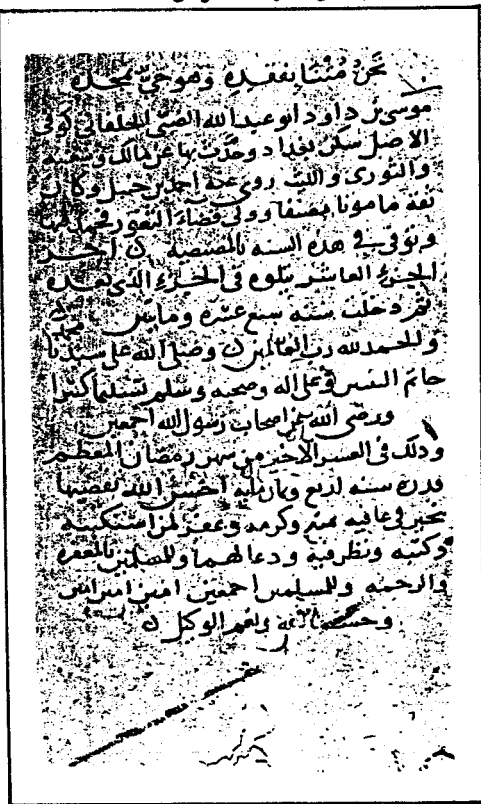 نحن متنا بفقده وهو حيّ بمجده
موسى بن داود ابو عبد الله الضبي الخلقاني كوفي
الاصل سكن بغداد وحدّث بها عن مالك وشعبة
والثوري والليث روى عنه احمد بن حنبل وكان
ثقة مامونا مصنفا وولى قضاء الثغور فحمد فيها
وتوفى في هذه السنه بالمصيصه آخر
الجزء العاشر يتلوه في الجزء الذي بعده
ثم دخلت سنه سبع عشره ومايتين
والحمد لله رب العالمين وصلى الله على سيدنا محمد
خاتم النبيين وعلى اله وصحبه وسلم تسليما كثيرا
ورضى الله عن اصحاب رسول الله اجمعين
وذلك في العشر الاخير من شهر رمضان المعظم
قدره سنه اربع وثمانمايه احسن الله تقضيها
بخير في عافيه بمنه وكرمه وغفر لمن استكتبه
وكتبه ونظر فيه ودعا لهما وللمسلمين بالمغفره
والرحمه وللمسلمين اجمعين امين امين امين
وحسبنا الله ونعم الوكيل